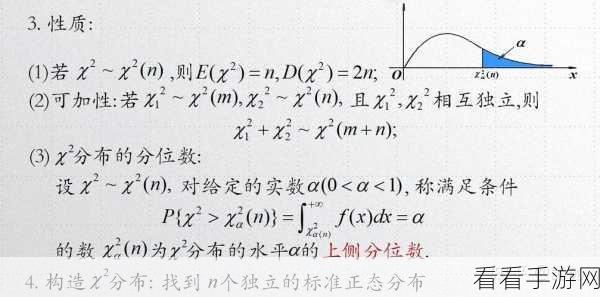 3. 性质:
α
O
χ²_α(n)
x
(1)若 χ² ~ χ²(n) ,则E(χ²) = n, D(χ²) = 2n;
(2)可加性:若 χ₁² ~ χ²(m), χ₂² ~ χ²(n), 且 χ₁², χ₂² 相互独立,则
χ₁² + χ₂² ~ χ²(m + n);
(3) χ²分布的分位数:
设 χ² ~ χ²(n), 对给定的实数α(0 < α < 1), 称满足条件
P{χ² > χ²_α(n)} = ∫_{χ²_α(n)}^{+∞} f(x)dx = α
的数 χ²_α(n)为χ²分布的水平α的上侧分位数.
4. 构造 χ²分布: 找到 n个独立的标准正态分布
看看手游网